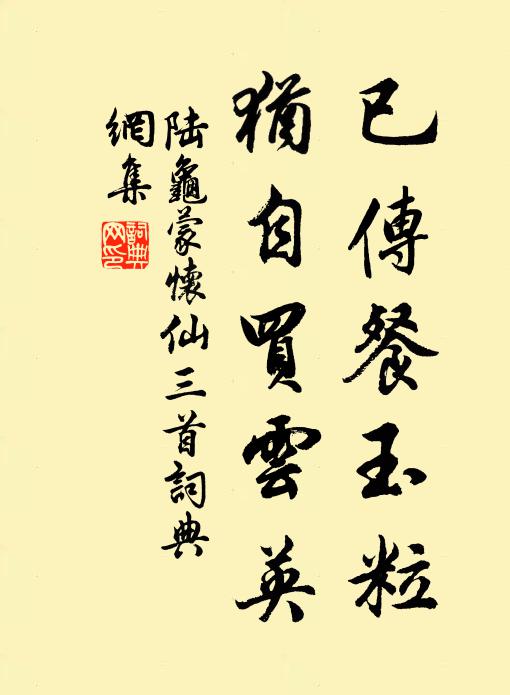 已傳餐玉粒
猶自買雲英
陆龜蒙懷仙三首詞典
網集
詞典
网印